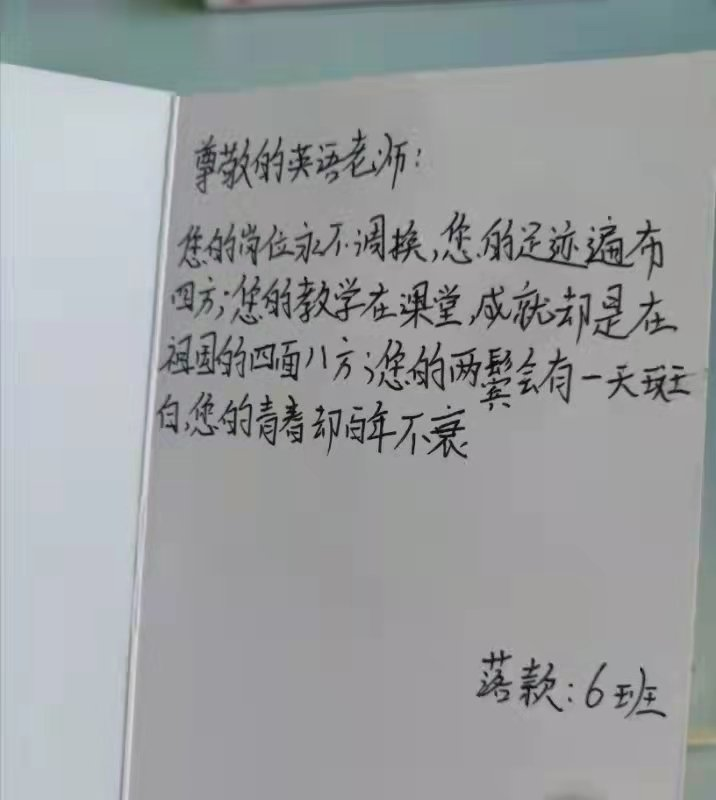 尊敬的英语老师：
您的岗位永不调换,您的足迹遍布
四方;您的教学在课堂,成就却是在
祖国的四面八方;您的两鬓会有一天斑
白,您的青春却百年不衰.
落款：6班